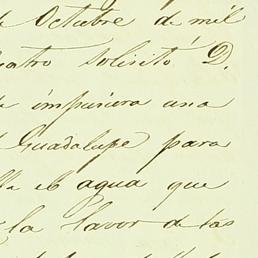 de Octubre de mil
cuatro solicitó D.
impusiera una
Guadalupe para
agua que
la labor de las